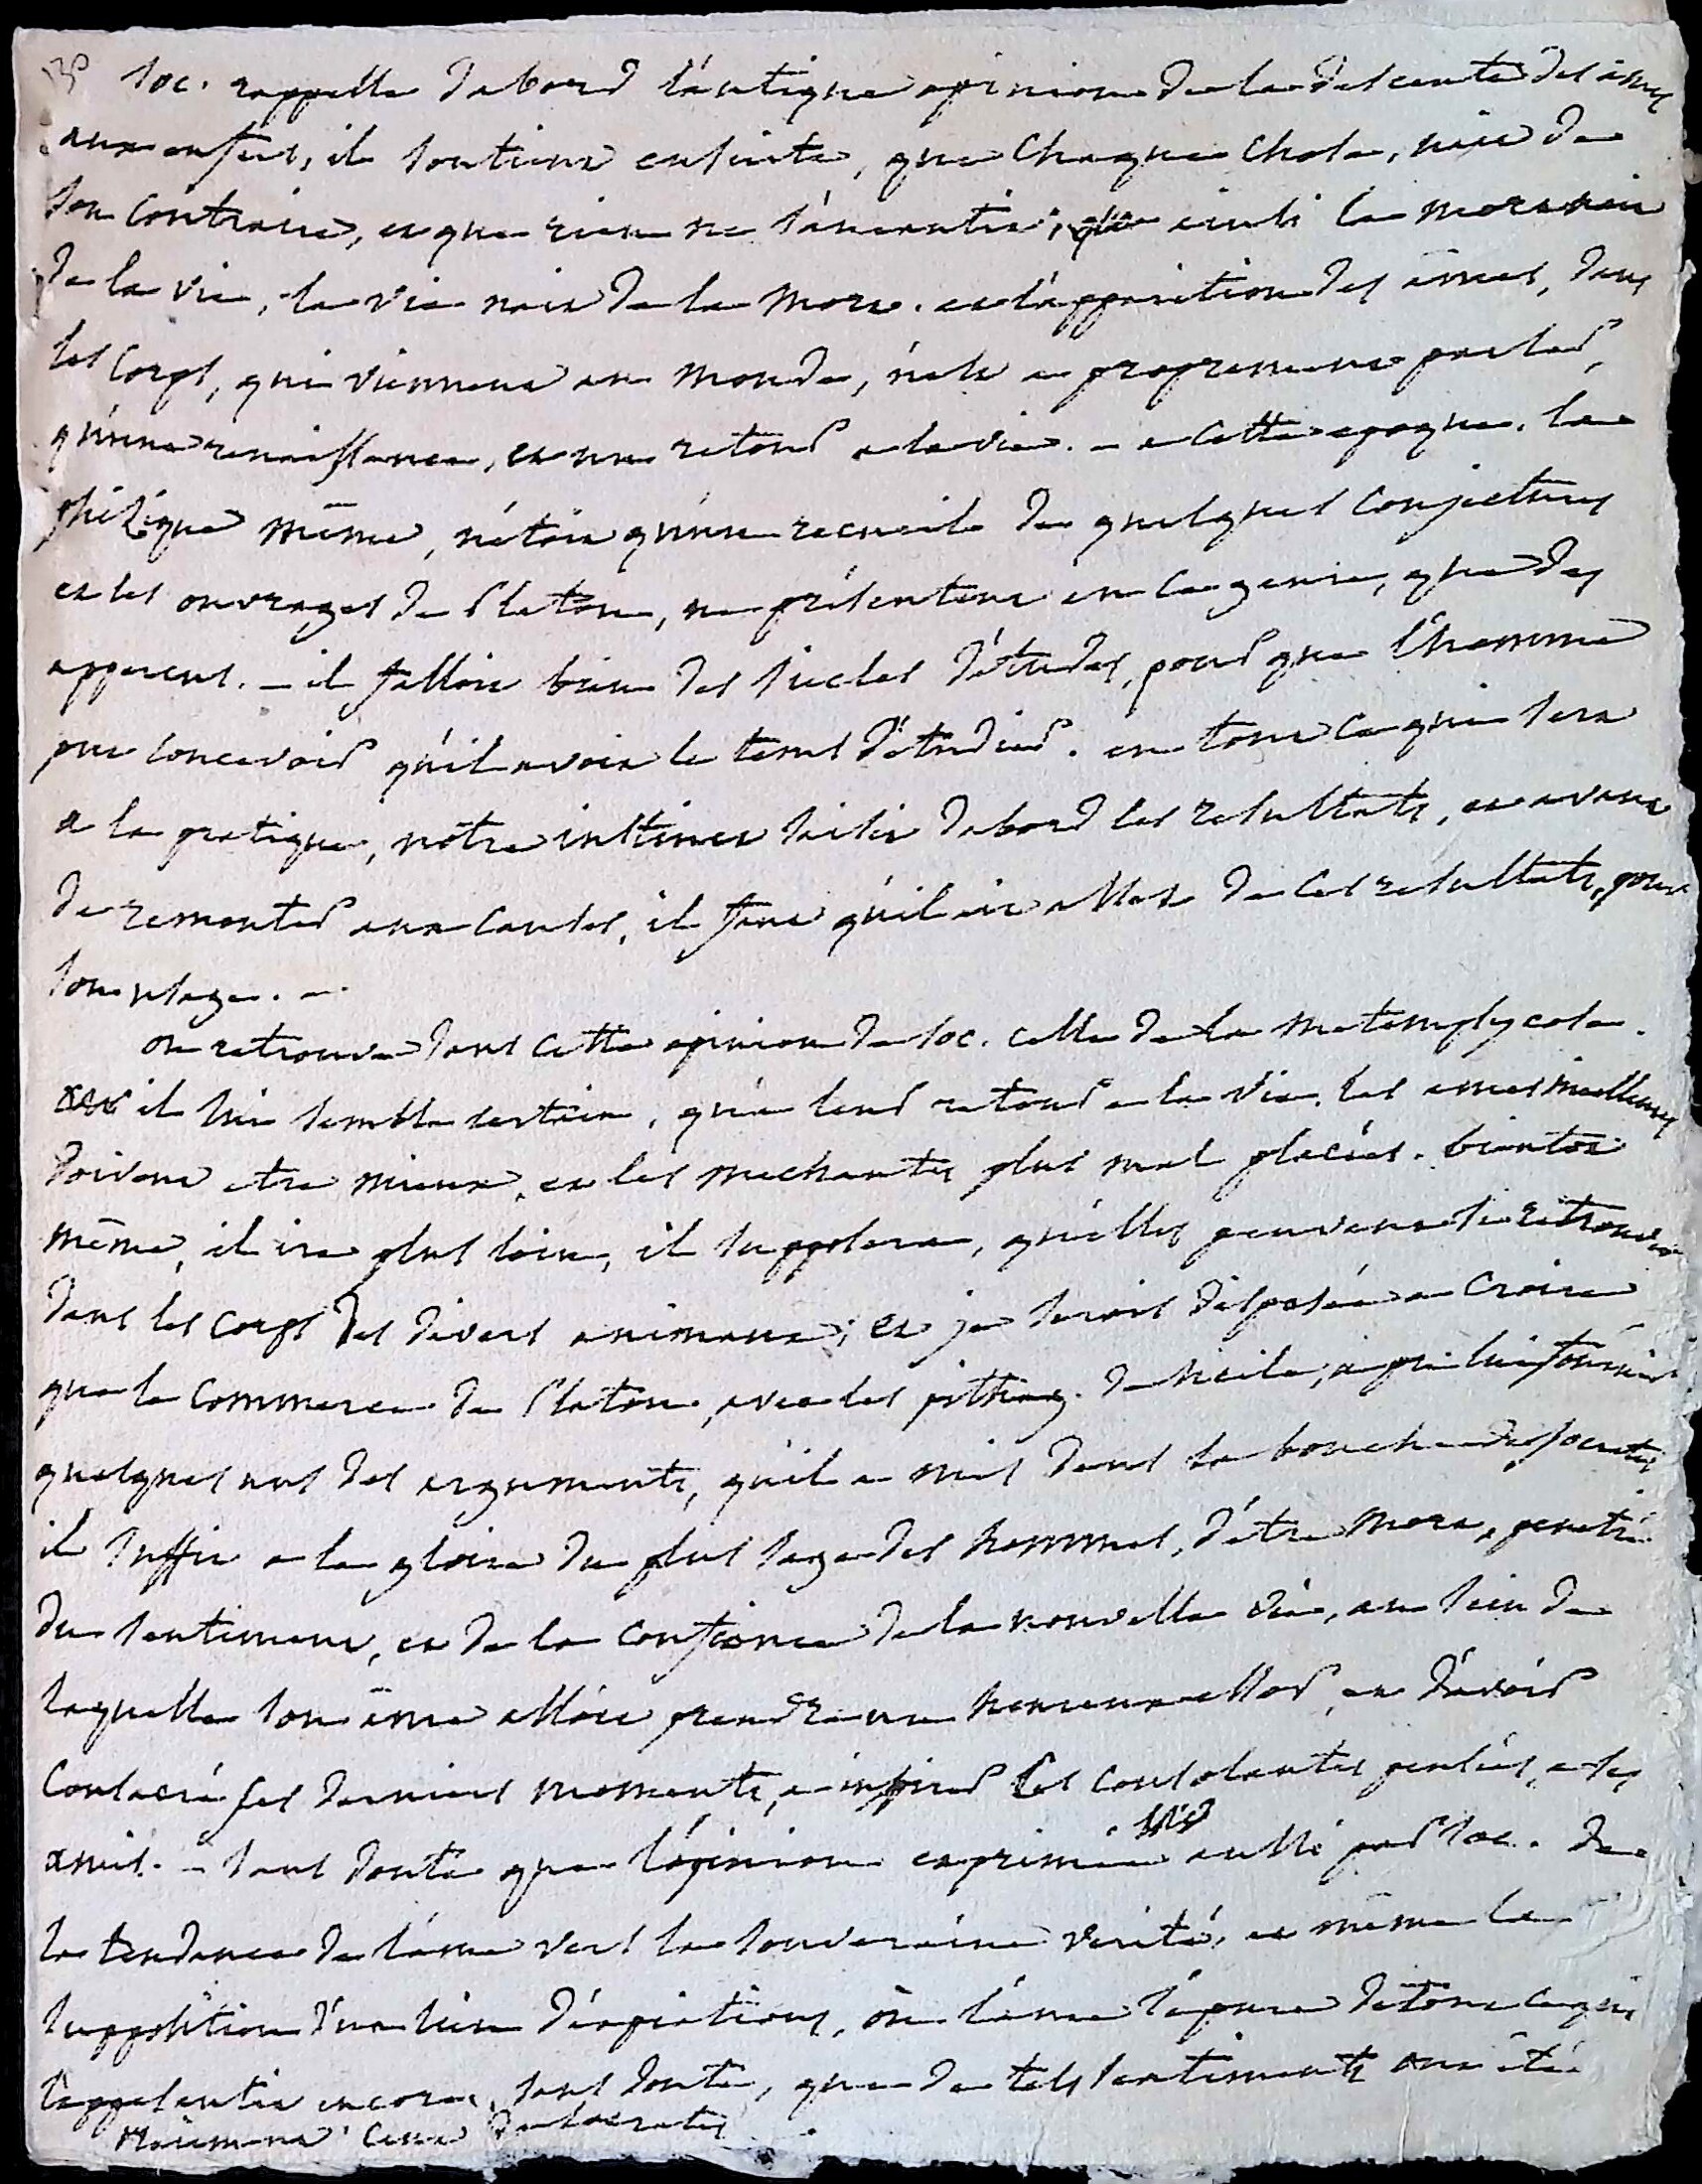 Soc. rappelle dabord l'antique opinion de la descente des ames
aux enfers, il soutient ensuite, que chaque chose, nait de
son contraire, et que rien ne s'aneantit, ainsi la mort nait
de la vie, la vie nait de la mort. et l'apparition des âmes, dans
les corps, qui viennent au monde, n'est a proprement parler,
qu'une renaissance, et un retour a la vie. – a cette epoque, la
phisique même, n'étoit qu'un recueil de quelques conjectures
et les ouvrages de Platon, ne présentent en ce genre, que des
apperçus. – il falloit bien des siecles d'études, pour que l'homme
put concevoir qu'il avoit le tems d'étudier. en tout ce qui sert
a la pratique, nôtre instinct saisit dabord les resultats, et avant
de remonter aux causes, il faut qu'il ait assez de ces resultats, pour
son usage. –
on retrouve dans cette opinion de Soc. celle de la metempsycose.
il lui semble certain, qu'a leur retour a la vie, les ames meilleures
doivent etre mieux, et les mechantes plus mal placées. bientot
même, il ira plus loin, il supposera, qu'elles peuvent se retrouver
dans les corps des divers animaux; et je serois disposée a croire
que le commerce de Platon, avec les pithag. de Sicile, a pu lui fournir
quelques uns des arguments, qu'il a mis dans la bouche de Socrates
il suffit a la gloire du plus sage des hommes, d'être mort, penetré
du sentiment, et de la confiance de la nouvelle vie, au sein de
laquelle son âme alloit prendre un heureux essor, et d'avoir
consacré ses derniers moments, a inspirer ces consolantes pensées, a ses
amis. – sans doute que l'opinion exprimée aussi par Soc. de
la tendance de l'ame vers la souveraine verité, et même la
supposition d'un lieu d'expiations, où l'ame s'épure de tout ce qui
l'appesantit encore, sans doute, que de tels sentiments ont été
ceux de Socrates